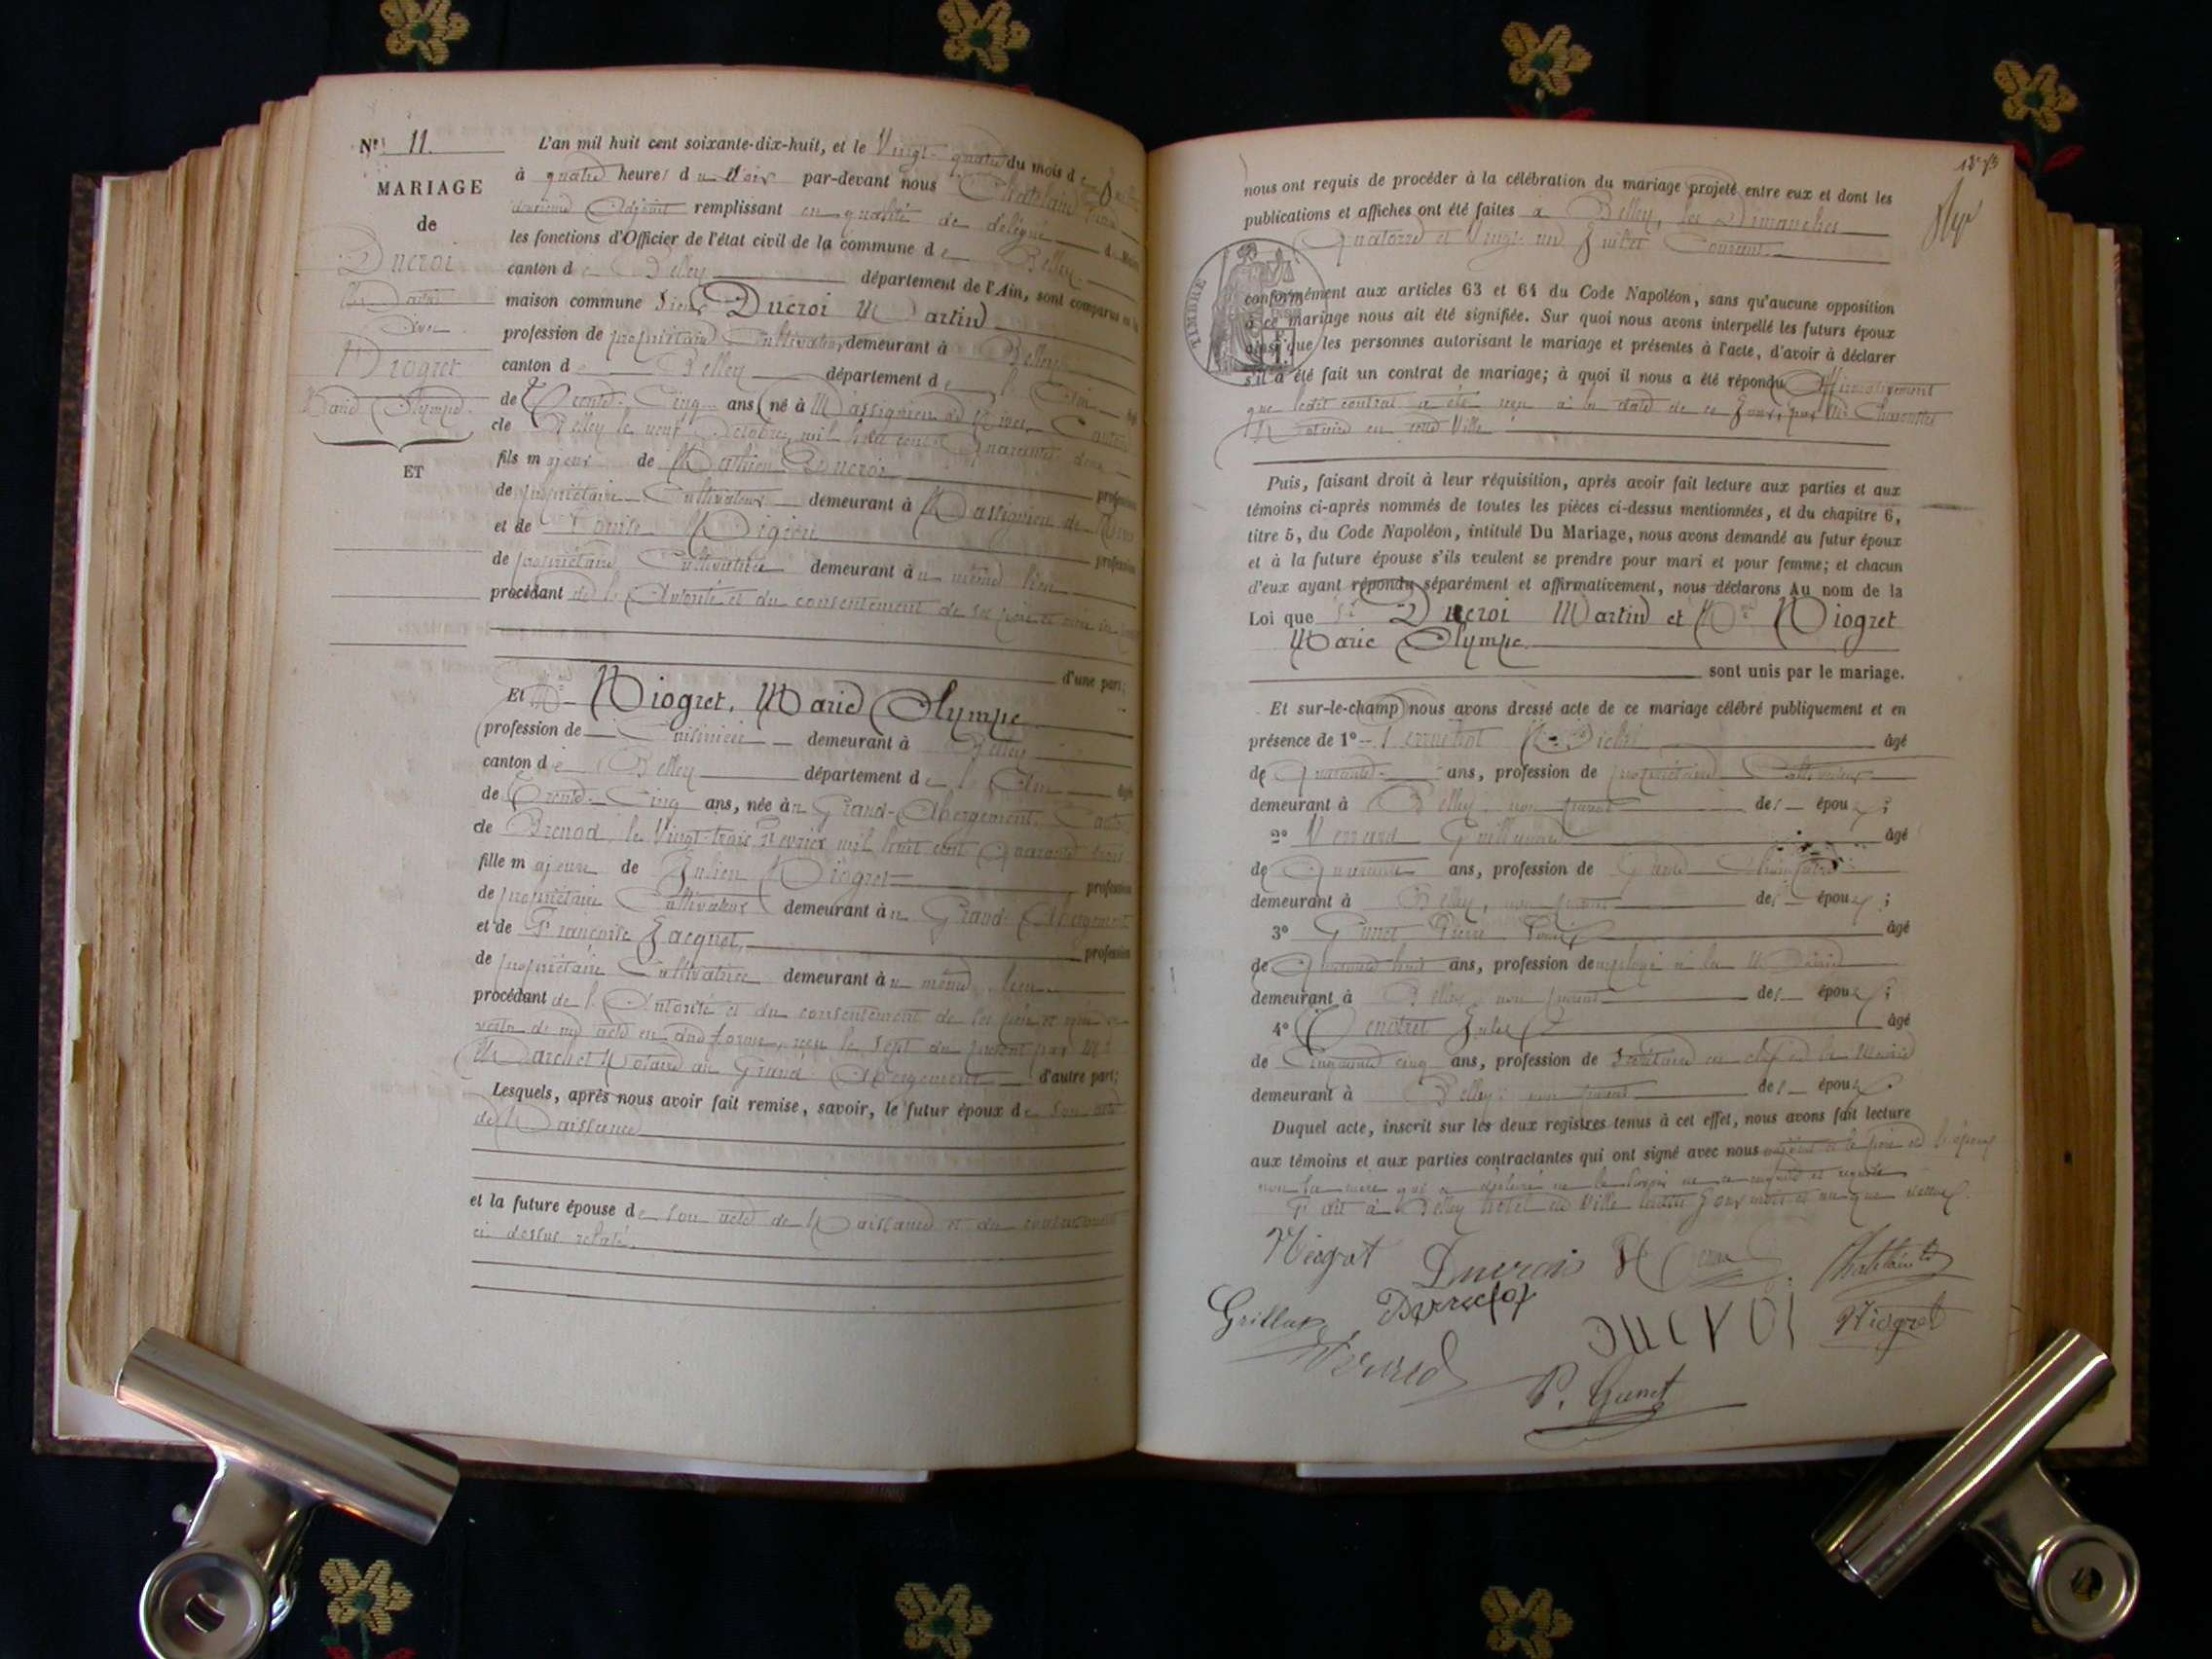 N° 11.
MARIAGE
de
Ducroi
Martin
Avec
Niogret
Marie Olympe.
ET
L'an mil huit cent soixante-dix-huit, et le Vingt-quatre du mois de
à quatre heures du Soir par-devant nous Chatelain
Adjoint remplissant en qualité de délégué du Maire
les fonctions d'Officier de l'état civil de la commune de Belley
canton de Belley département de l'Ain, sont comparus en la
maison commune Sieur Ducroi Martin
profession de propriétaire Cultivateur demeurant à Belley
canton de Belley département de l'Ain âgé
de Trente-Cinq ans (né à Massignieu de Rives, Canton
de Belley le neuf Octobre, mil huit cent Quarante-deux
fils majeur de Ducroi profession
de propriétaire Cultivateur demeurant à Massignieu de Rives
et de Louise profession
de propriétaire Cultivatrice demeurant au même lieu
procédant de l'Autorité et du consentement de ses père et mère
d'une part;
Et Niogret, Marie Olympe
profession de Cuisinière demeurant à Belley
canton de Belley département de l'Ain âgée
de Trente-Cinq ans, née au Grand-Abergement, Canton
de Brenod, le Vingt-trois Février mil huit cent Quarante trois
fille majeure de Julien Niogret profession
de propriétaire Cultivateur demeurant au Grand-Abergement
et de Françoise Jacquet, profession
de propriétaire Cultivatrice demeurant au même lieu
procédant de l'Autorité et du consentement de ses père et mère en
vertu de un acte en due forme, reçu le Sept du présent par Me
Marchet Notaire au Grand Abergement d'autre part;
Lesquels, après nous avoir fait remise, savoir, le futur époux de son acte
de Naissance
et la future épouse de son acte de Naissance et du consentement
ci dessus relaté.
nous ont requis de procéder à la célébration du mariage projeté entre eux et dont les
publications et affiches ont été faites à Belley, les Dimanches
Quatorze et Vingt-un Juillet Courant.
TIMBRE
conformément aux articles 63 et 64 du Code Napoléon, sans qu'aucune opposition
à ce mariage nous ait été signifiée. Sur quoi nous avons interpellé les futurs époux
ainsi que les personnes autorisant le mariage et présentes à l'acte, d'avoir à déclarer
s'il a été fait un contrat de mariage; à quoi il nous a été répondu Affirmativement
que ledit contrat a été reçu à la date de ce Jour, par Me
Notaire en cette Ville
Puis, faisant droit à leur réquisition, après avoir fait lecture aux parties et aux
témoins ci-après nommés de toutes les pièces ci-dessus mentionnées, et du chapitre 6,
titre 5, du Code Napoléon, intitulé Du Mariage, nous avons demandé au futur époux
et à la future épouse s'ils veulent se prendre pour mari et pour femme; et chacun
d'eux ayant répondu séparément et affirmativement, nous déclarons Au nom de la
Loi que Sr Ducroi Martin et Niogret
Marie Olympe
sont unis par le mariage.
Et sur-le-champ nous avons dressé acte de ce mariage célébré publiquement et en
présence de 1° âgé
de Quarante ans, profession de propriétaire Cultivateur
demeurant à Belley, non parent des époux;
2° Guillaume âgé
de Quarante ans, profession de Garde Champêtre
demeurant à Belley, non parent des époux;
3° Gunet Pierre Louis âgé
de Quarante huit ans, profession de employé à la Mairie
demeurant à Belley, non parent des époux;
4° Jules âgé
de Cinquante cinq ans, profession de Secrétaire en chef de la Mairie
demeurant à Belley, non parent des époux.
Duquel acte, inscrit sur les deux registres tenus à cet effet, nous avons fait lecture
aux témoins et aux parties contractantes qui ont signé avec nous et le père de l'époux
non sa mère qui a déclaré ne le savoir de ce enquise et requise
Fait à Belley hôtel de Ville lesdits Jour mois et an que dessus.
Niogret Ducrois Chatelain
Grillon
DUCROI Niogret
P. Gunet